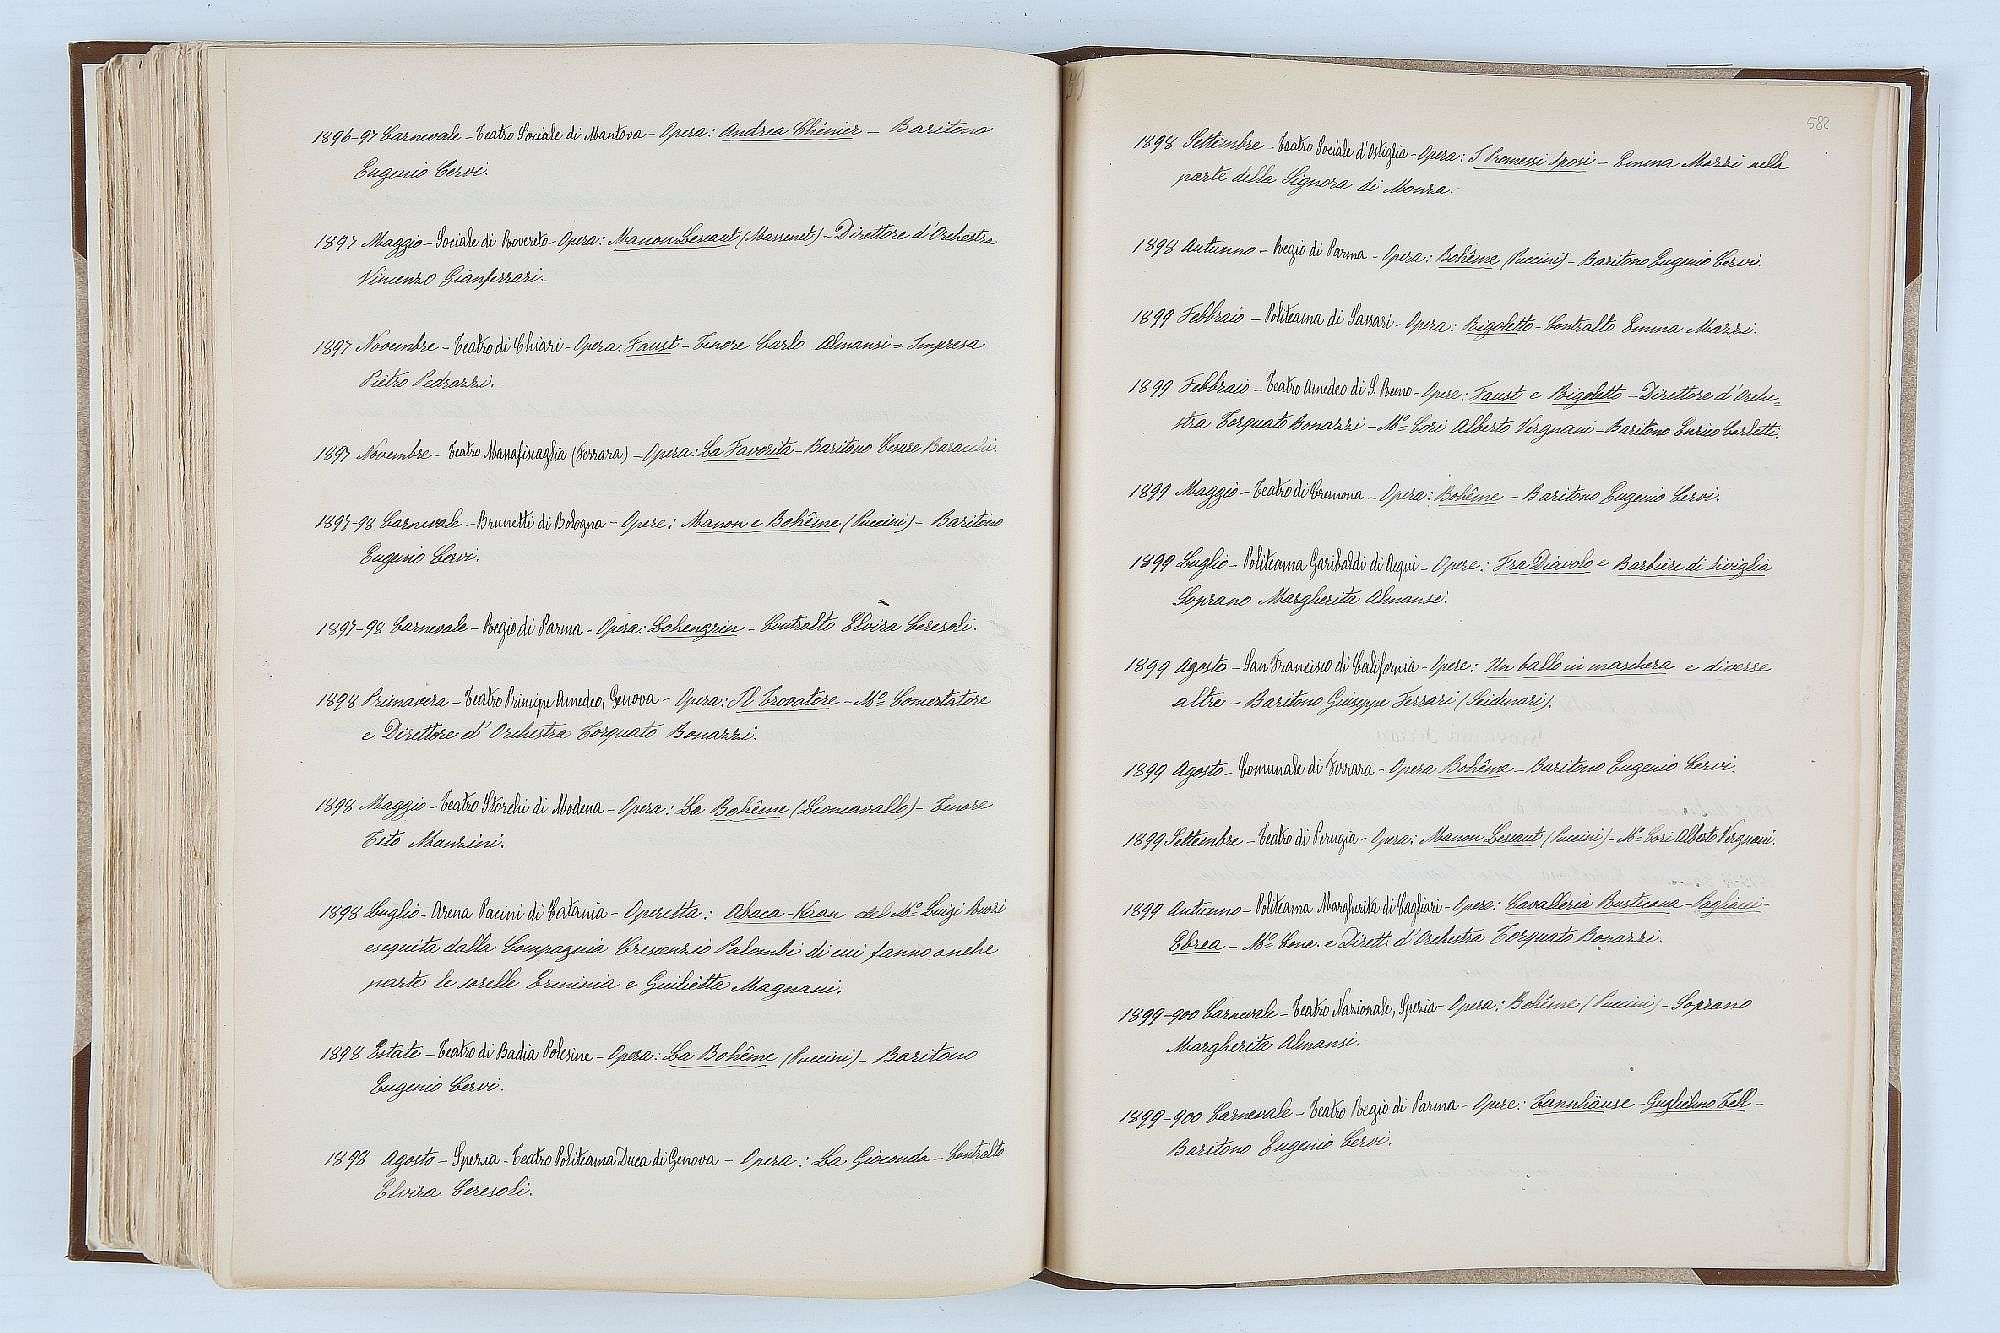 1896-97 Carnevale - Teatro Sociale di Mantova - Opera: Andrea Chénier - Baritono
Eugenio Cervi.
1897 Maggio - Sociale di Rovereto - Opera: Manon Lescaut (Massenet) - Direttore d'Orchestra
Vincenzo Gianferrari.
1897 Novembre - Teatro di Chiari - Opera: Faust - Tenore Carlo Almansi - Impresa
Pietro Pedrazzi.
1897 Novembre - Teatro Massafiscaglia (Ferrara) - Opera: La Favorita - Baritono Cesare
1897-98 Carnevale - Brunetti di Bologna - Opere: Manon e Bohême (Puccini) - Baritono
Eugenio Cervi.
1897-98 Carnevale - Regio di Parma - Opera: Lohengrin - Contralto Elvira Ceresoli.
1898 Primavera - Teatro Principe Amedeo, Genova - Opera: Il Trovatore - Mo Concertatore
e Direttore d'Orchestra Torquato Bonazzi.
1898 Maggio - Teatro Storchi di Modena - Opera: La Bohême (Leoncavallo) - Tenore
Tito Manzini.
1898 Luglio - Arena Pacini di Catania - Operetta: Abaca-Kran del Mo Luigi
eseguita dalla Compagnia Crescenzio Palombi di cui fanno anche
parte le sorelle Erminia e Giulietta Magnani.
1898 Estate - Teatro di Badia Polesine - Opera: La Bohême (Puccini) - Baritono
Eugenio Cervi.
1898 Agosto - Spezia - Teatro Politeama Duca di Genova - Opera: La Gioconda - Contralto
Elvira Ceresoli.
582
1898 Settembre - Teatro Sociale d'Ostiglia - Opera: I Promessi Sposi - Emma Mazzi nella
parte della Signora di Monza.
1898 Autunno - Regio di Parma - Opera: Bohême (Puccini) - Baritono Eugenio Cervi.
1899 Febbraio - Politeama di Sassari - Opera: Rigoletto - Contralto Emma Mazzi.
1899 Febbraio - Teatro Amedeo di S. Remo - Opere: Faust e Rigoletto - Direttore d'Orche=
stra Torquato Bonazzi - Mo Cori Alberto Vergnani - Baritono Enrico Carletti.
1899 Maggio - Teatro di Cremona - Opera: Bohême - Baritono Eugenio Cervi.
1899 Luglio - Politeama Garibaldi di Acqui - Opere: Fra Diavolo e Barbiere di Siviglia
Soprano Margherita Almansi.
1899 Agosto - San Francisco di California - Opere: Un ballo in maschera e diverse
altre - Baritono Giuseppe Ferrari
1899 Agosto - Comunale di Ferrara - Opera Bohême - Baritono Eugenio Cervi.
1899 Settembre - Teatro di Perugia - Opera: Manon Lescaut (Puccini) - Mo Cori Alberto Vergnani.
1899 Autunno - Politeama Margherita di Cagliari - Opere: Cavalleria Rusticana - Pagliacci -
Ebrea - Mo Conc. e Dirett. d'Orchestra Torquato Bonazzi.
1899-900 Carnevale - Teatro Nazionale, Spezia - Opera: Bohême (Puccini) - Soprano
Margherita Almansi.
1899-900 Carnevale - Teatro Regio di Parma - Opere: Tannhäuse - Guglielmo Tell -
Baritono Eugenio Cervi.